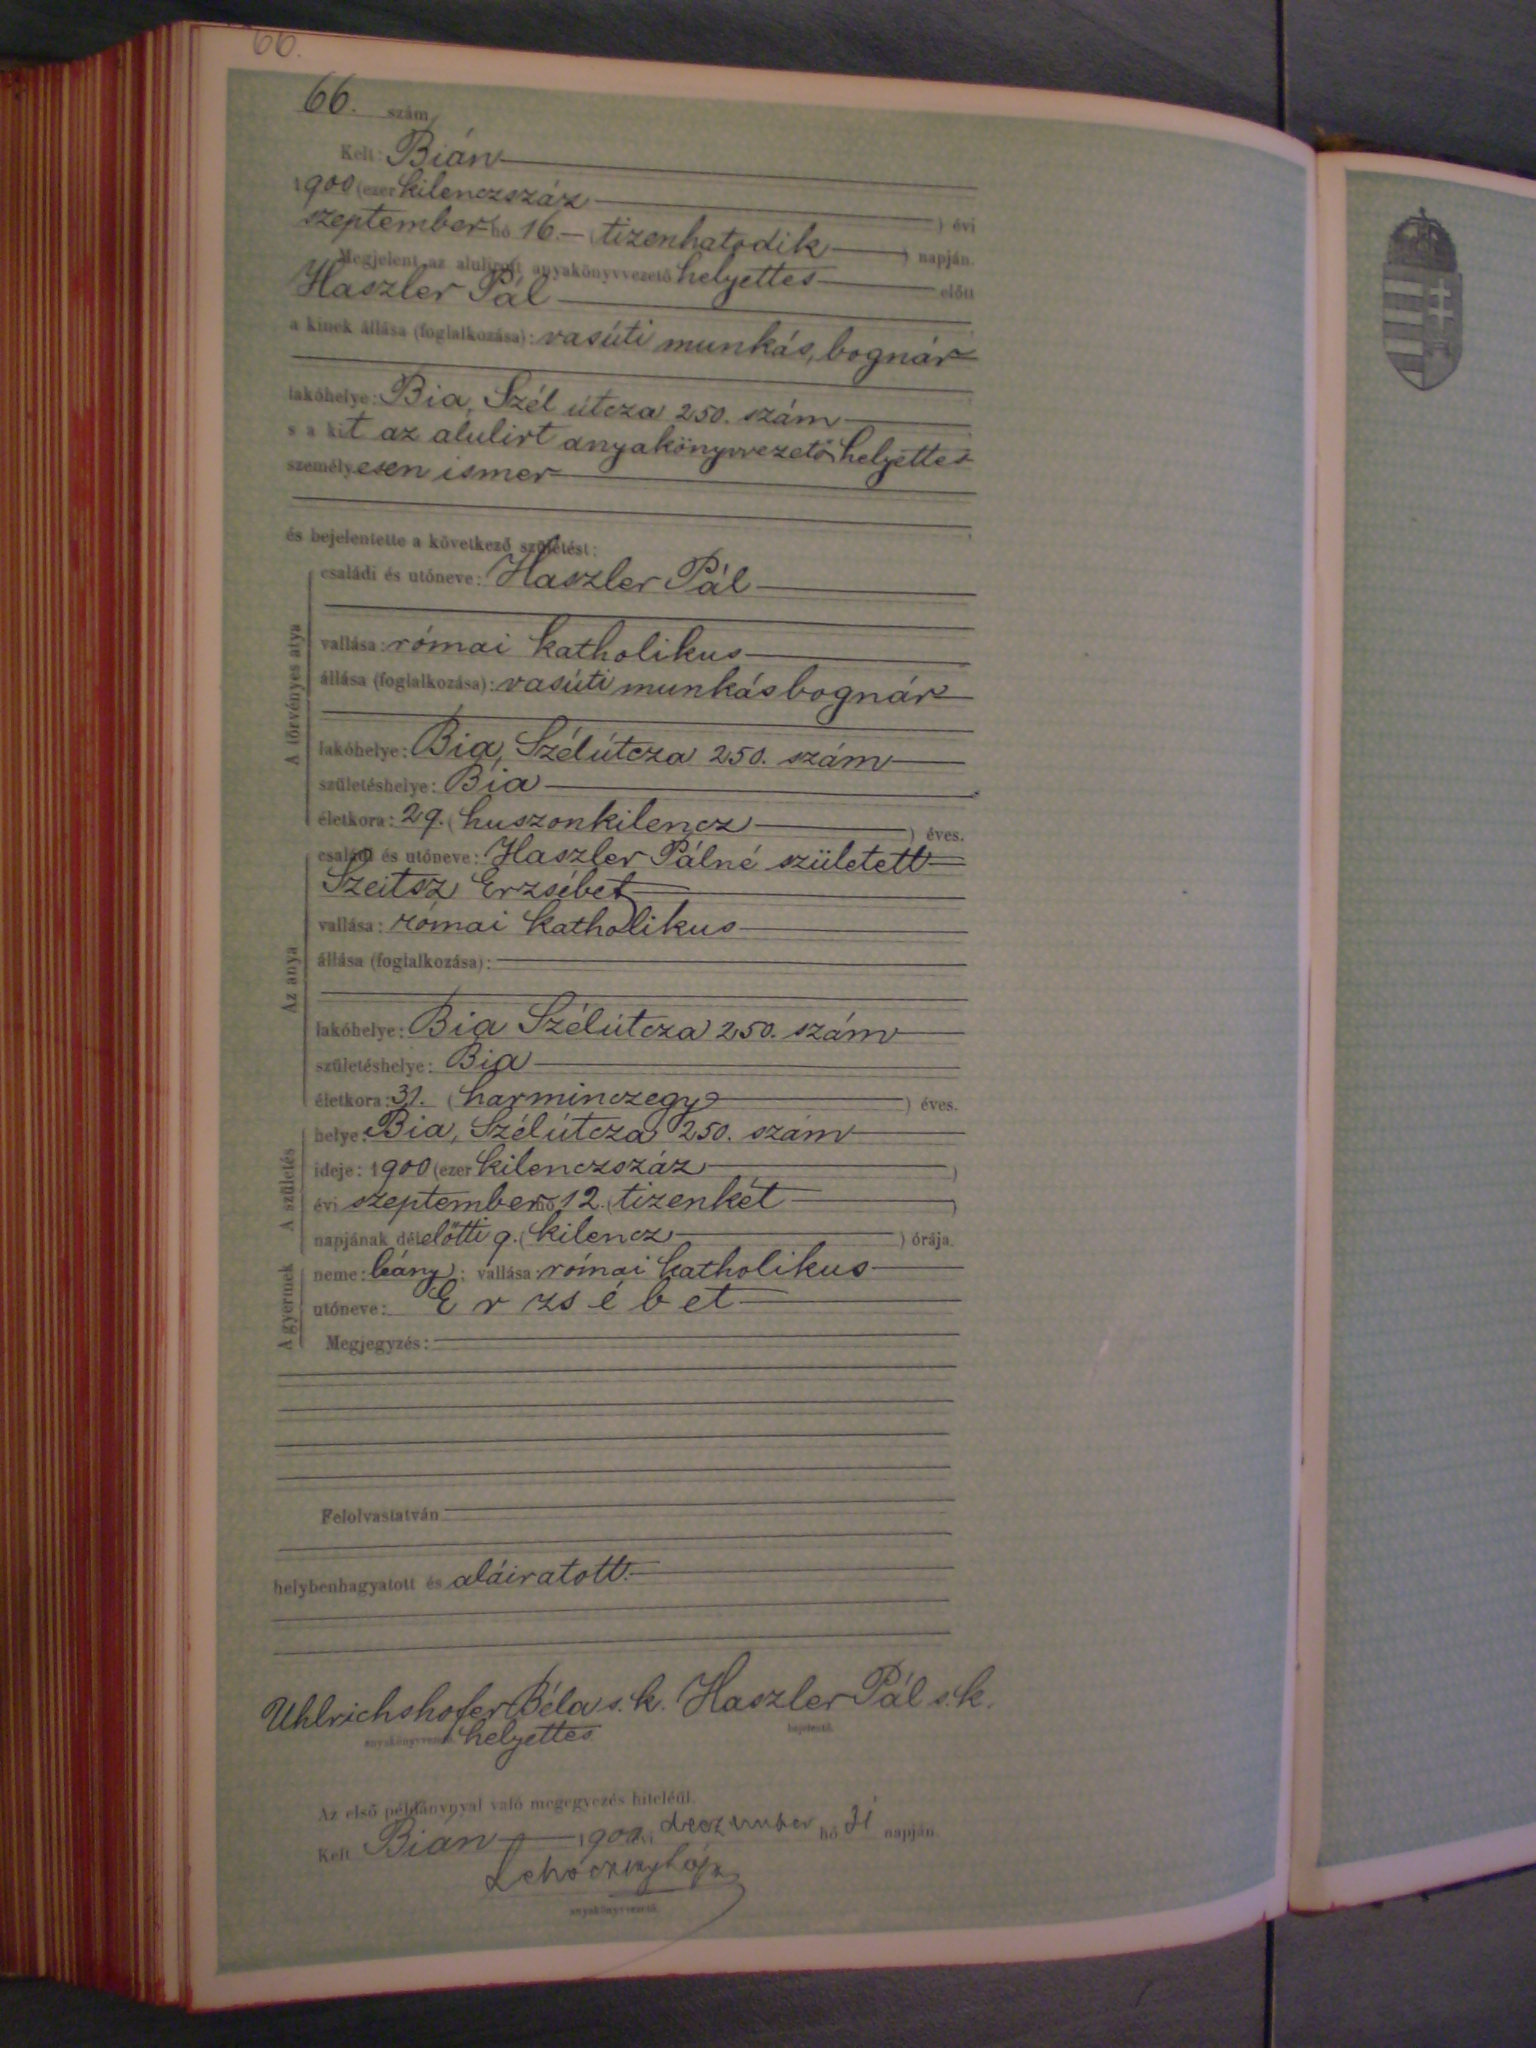 66.
66. szám
Kelt: Bián
1900 (ezer kilenczszáz ) évi
szeptember hó 16. – (tizenhatodik ) napján.
Megjelent az alulirott anyakönyvvezető helyettes előtt
Haszler Pál
a kinek állása (foglalkozása): vasúti munkás, bognár
lakóhelye: Bia, Szél útcza 250. szám
s a kit az alulirt anyakönyvvezető helyettes
személyesen ismer
és bejelentette a következő születést:
A törvényes atya
családi és utóneve: Haszler Pál
vallása: római katholikus
állása (foglalkozása): vasúti munkás bognár
lakóhelye: Bia, Szélútcza 250. szám
születéshelye: Bia
életkora: 29. (huszonkilencz ) éves.
Az anya
családi és utóneve: Haszler Pálné született
Szeitsz Erzsébet
vallása: római katholikus
állása (foglalkozása):
lakóhelye: Bia Szélútcza 250. szám
születéshelye: Bia
életkora: 31. (harminczegy ) éves.
A születés
helye: Bia, Szélútcza 250. szám
ideje: 1900 (ezer kilenczszáz )
évi szeptember hó 12. (tizenkét )
napjának délelőtti 9. (kilencz ) órája.
A gyermek
neme: leány; vallása: római katholikus
utóneve: Erzsébet
Megjegyzés:
Felolvastatván
helybenhagyatott és aláiratott.
Uhlrichshofer Béla s. k. Haszler Pál s. k.
anyakönyvvezető helyettes bejelentő.
Az első példánynyal való megegyezés hiteléül.
Kelt Bián 1900 évi deczember hó 31 napján.
anyakönyvvezető.